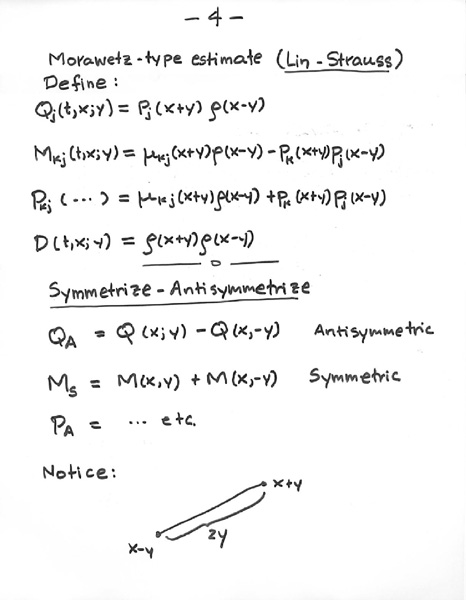 - 4 -
Morawetz-type estimate (Lin-Strauss)
Define:
Qj(t,x;y) = Pj(x+y) ρ(x-y)
Mkj(t,x;y) = μkj(x+y)ρ(x-y) - Pk(x+y)Pj(x-y)
Pkj (...) = μkj(x+y)ρ(x-y) + Pk(x+y)Pj(x-y)
D(t,x;y) = ρ(x+y)ρ(x-y)
Symmetrize-Antisymmetrize
QA = Q(x;y) - Q(x,-y) Antisymmetric
Ms = M(x,y) + M(x,-y) Symmetric
PA = ... etc.
Notice:
x+y
2y
x-y